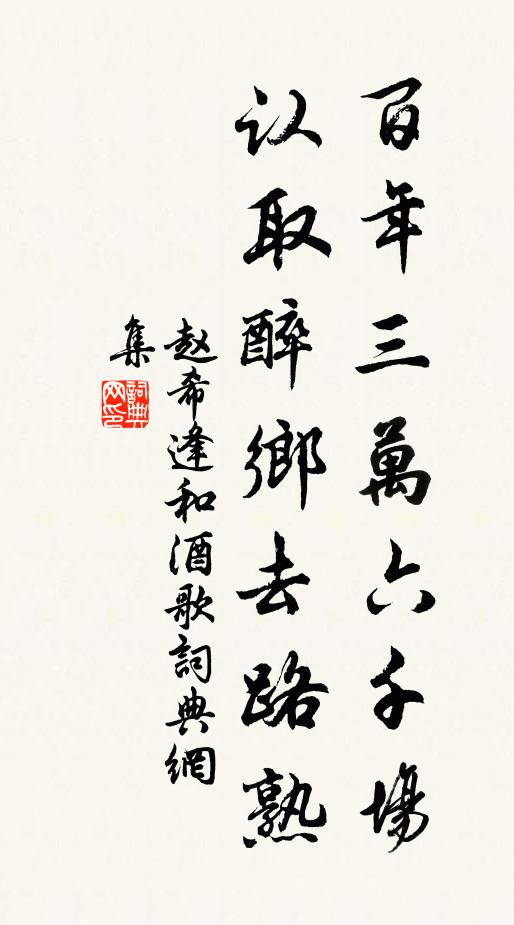 百年三萬六千場
认取醉鄉去路熟
赵希逢和酒歌詞典網
集
詞典
网印